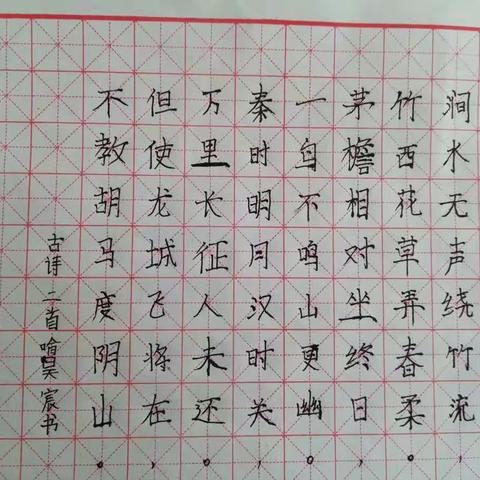 涧水无声绕竹流
竹西花草弄春柔。
茅檐相对坐终日，
一鸟不鸣山更幽。
秦时明月汉时关，
万里长征人未还。
但使龙城飞将在，
不教胡马度阴山。
古诗二首 喻昊宸书